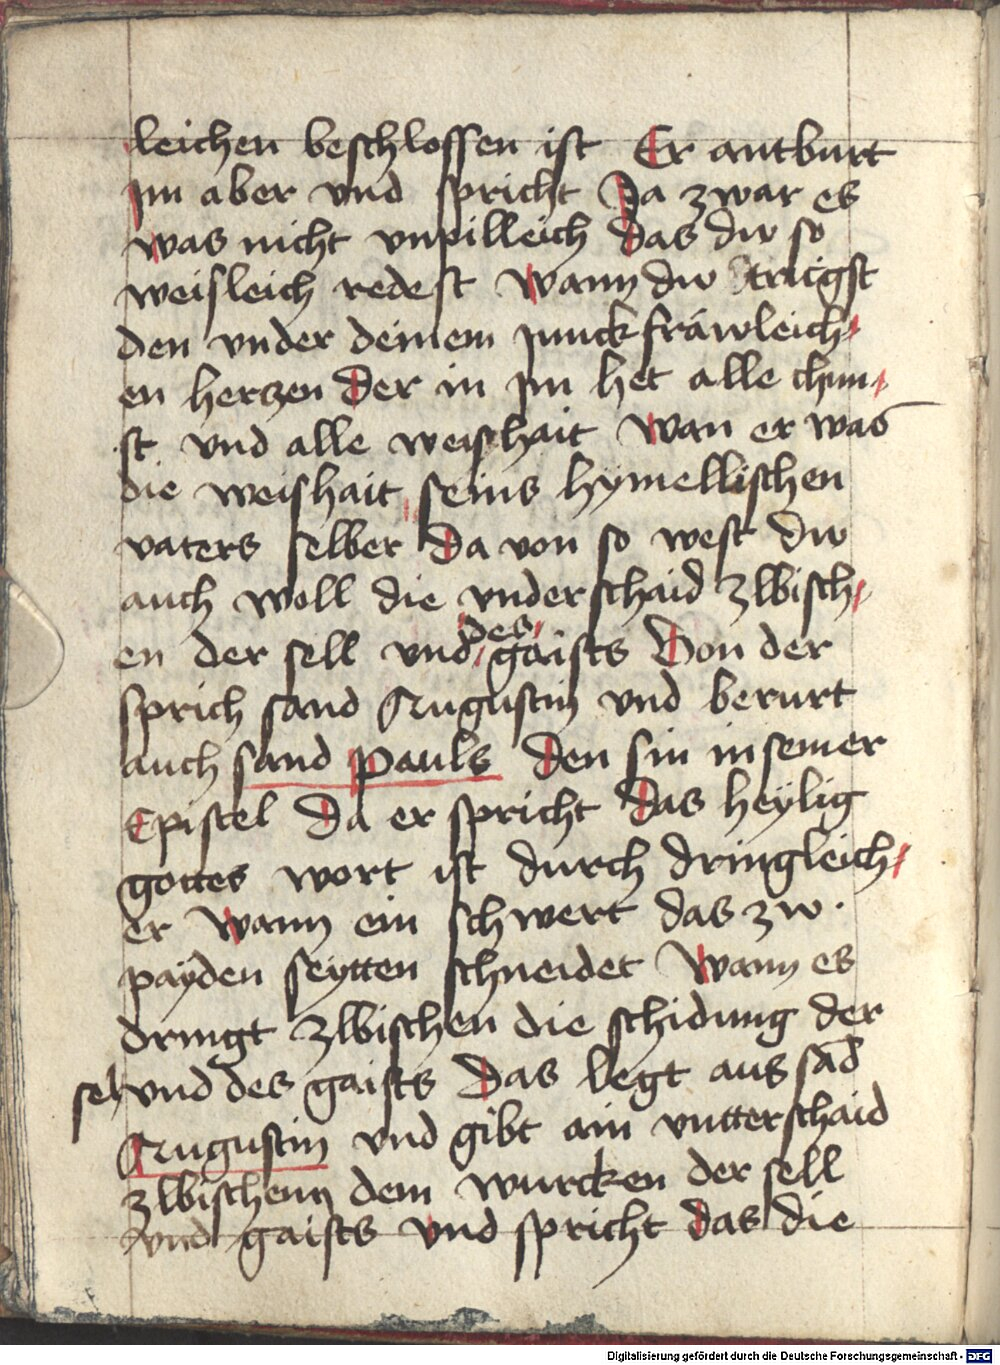 leichen beschlossen ist Er antburt
im aber vnd spricht Ja zwar es
was nicht vnpilleich das dw so
weisleich redest Wann dw trugst
den vnder deinem junckfräwleich⸗
en herczen Der in im het alle chun⸗
st vnd alle weishait Wan er was
die weishait seins hymellischen
vaters selber Da von so west dw
auch woll die vnderschaid zwisch⸗
en der sell vnd des gaists Von der
sprich sand Augustin vnd berurt
auch sand Pauls Den sin in seiner
Epistel Da er spricht Das heylig
gottes wort ist durch dringleich⸗
er Wann ein schwert das zw
payden seytten schneidet Wann es
dringt zlbischen die schidung der
sel vnd des gaists Das legt aus sād
Augustin vnd gibt ain vntterschaid
zlbischenn dem wurcken der sell
vnd gaists vnd spricht das die
Digitalisierung gefördert durch die Deutsche Forschungsgemeinschaft - DFG